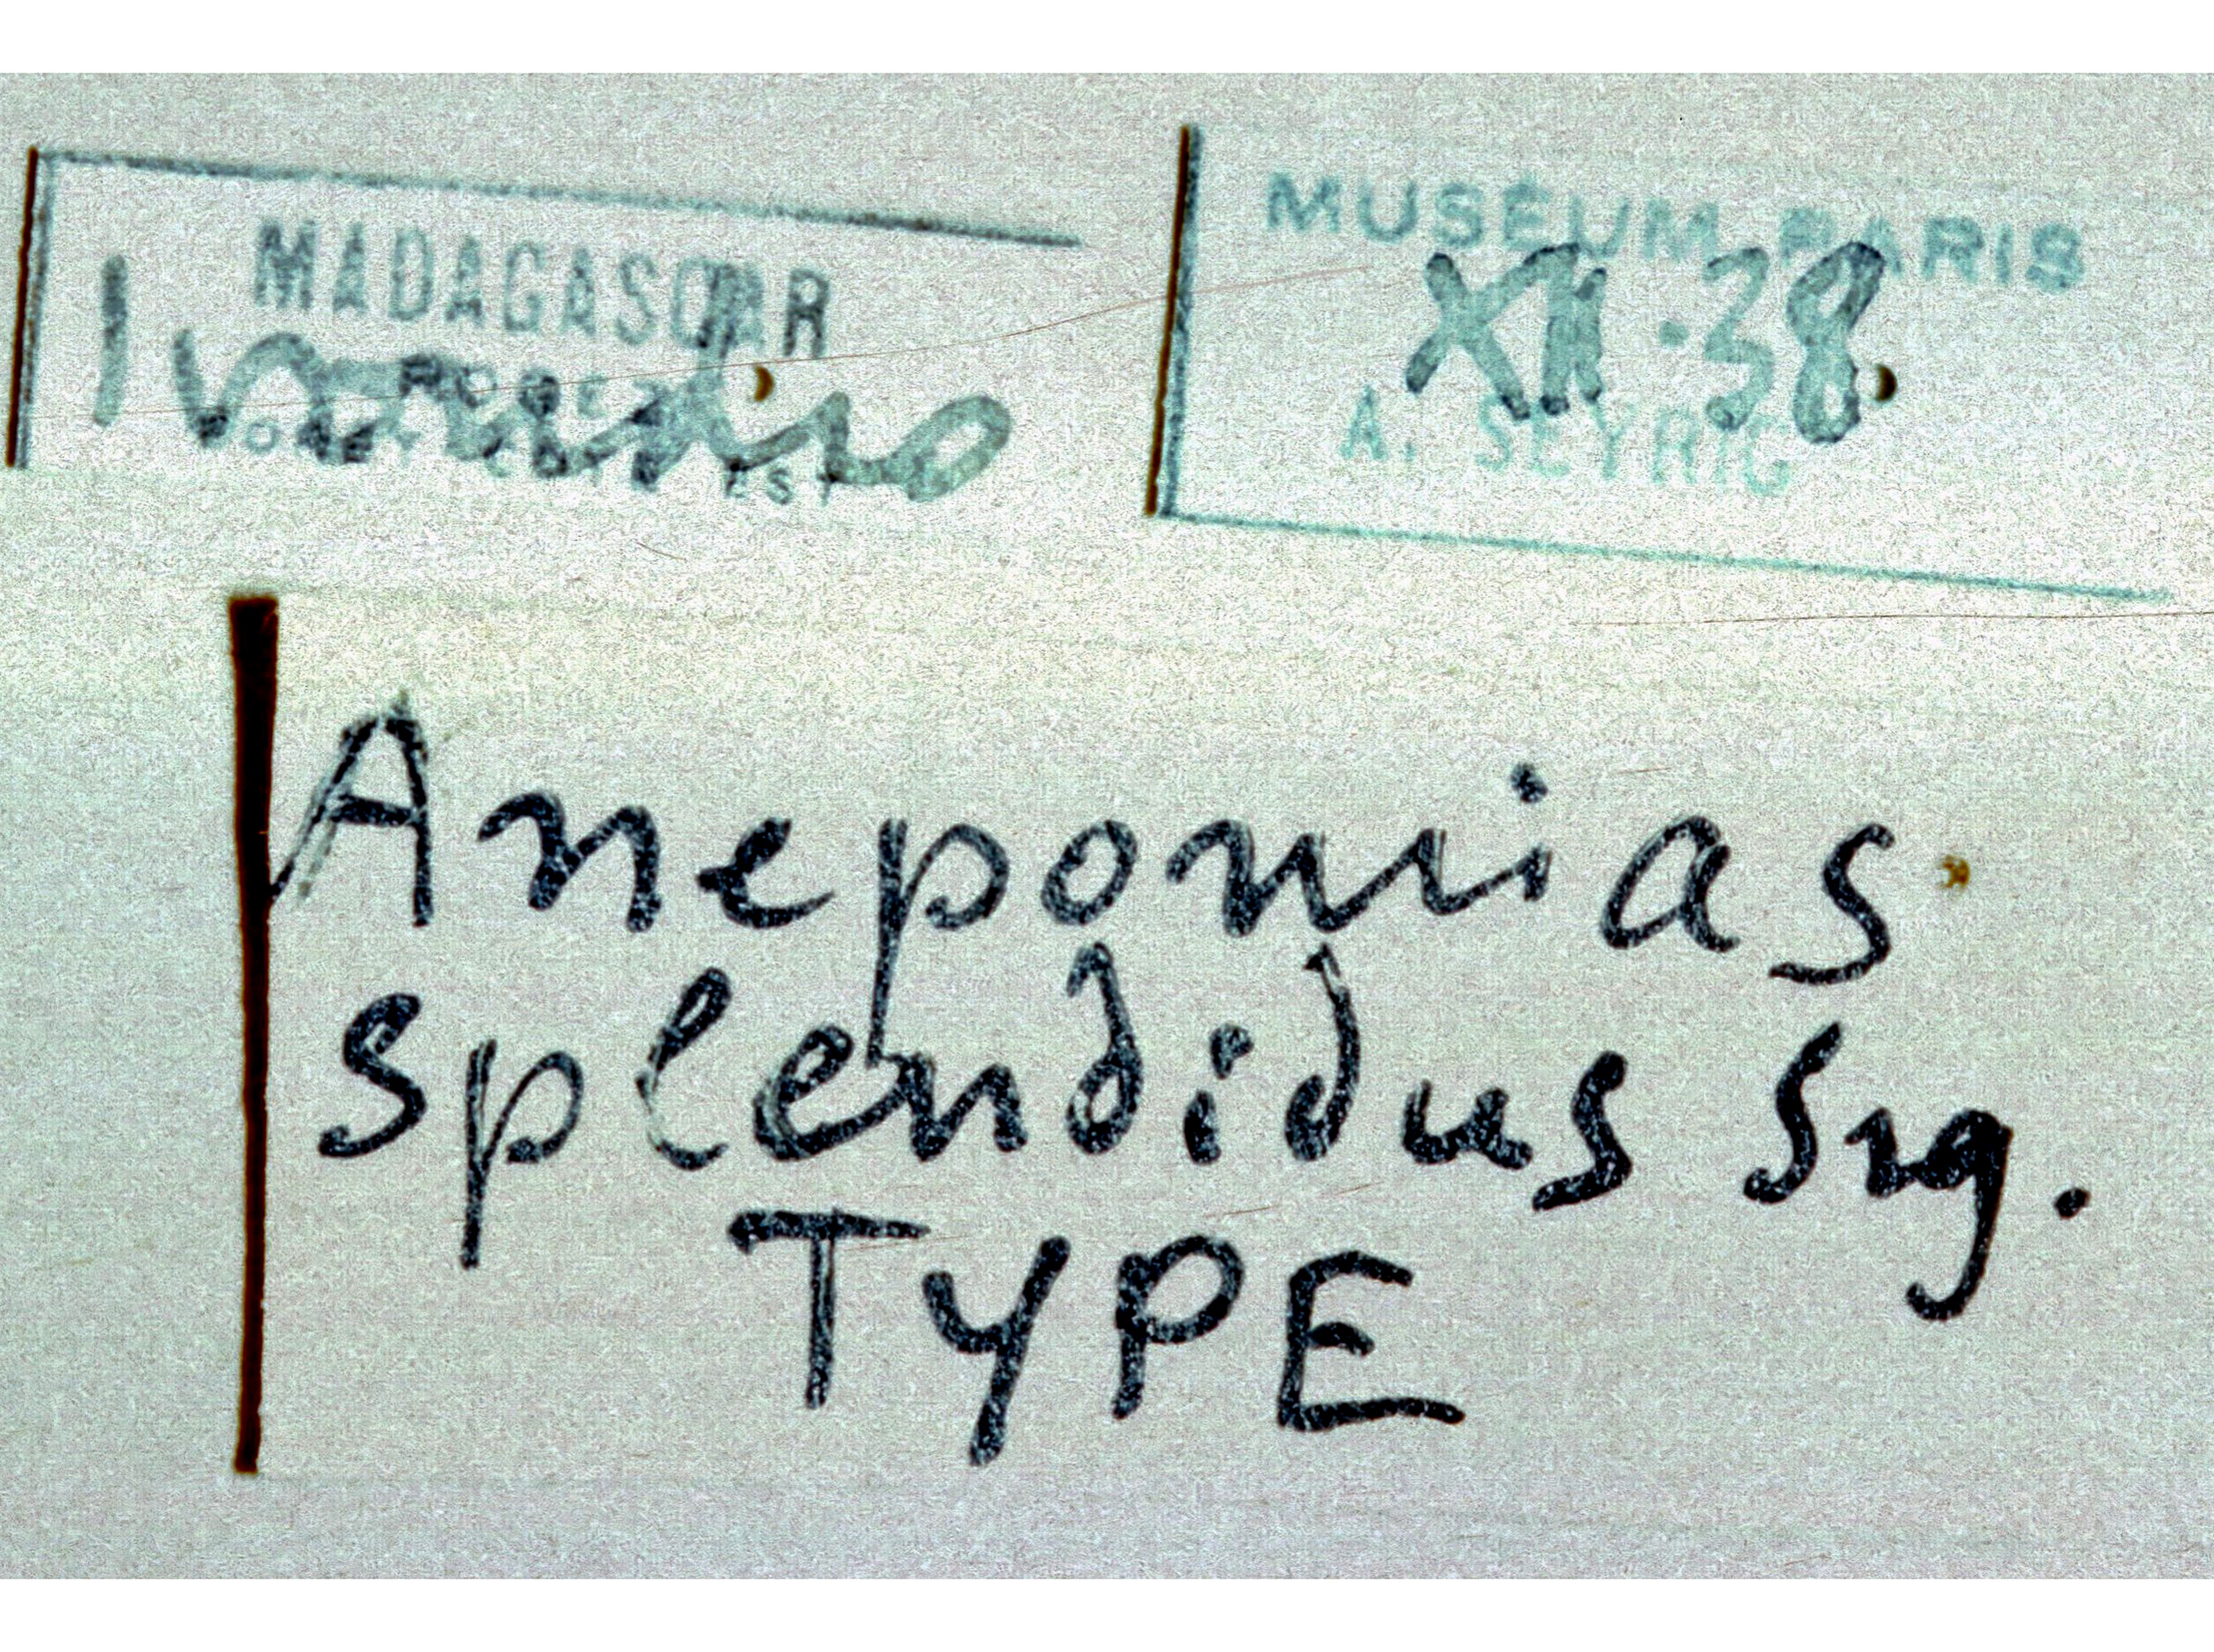 MADAGASCAR
ROGEZ
FORET COTE EST
MUSÉUM PARIS
XII.38
A. SEYRIG
Anepomias
splendidus Srg.
TYPE